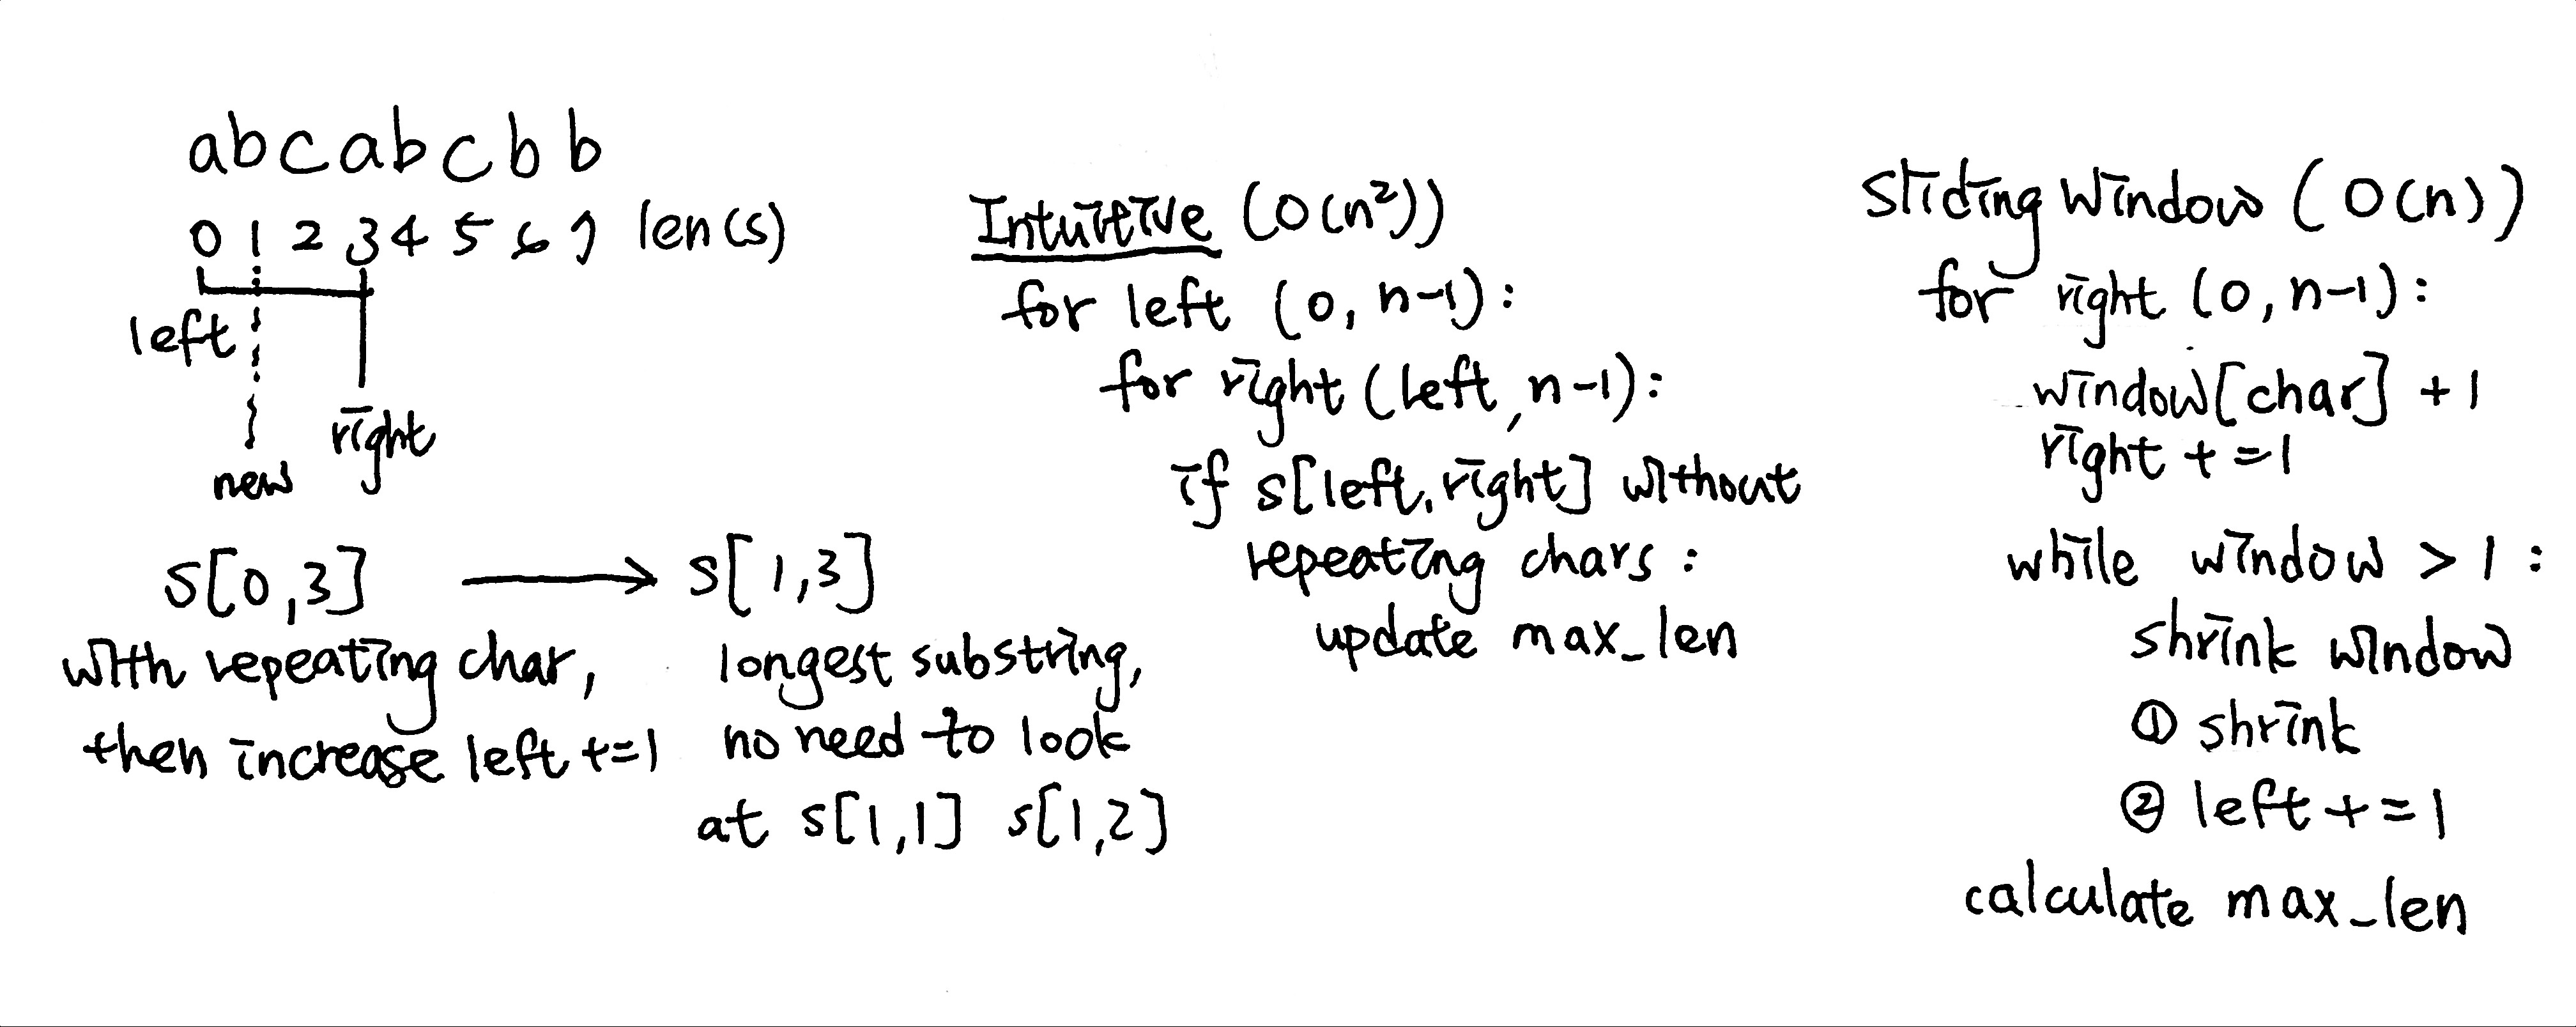 abcabcbb
0 1 2 3 4 5 6 7 len(s)
left
right
new
s[0,3] → s[1,3]
with repeating char,
then increase left +=1
longest substring,
no need to look
at s[1,1] s[1,2]
Intuitive (O(n²))
for left (0, n-1):
for right (left, n-1):
if s[left, right] without
repeating chars:
update max_len
Sliding Window (O(n))
for right (0, n-1):
window[char] + 1
right +=1
while window > 1:
shrink window
① shrink
② left +=1
calculate max_len